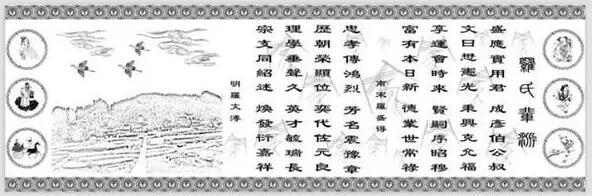 羅氏輩派
盛應實用君 成彥伯公叔
文日想憲光 秉興克允福
享運會時來 賢嗣序昭穆
富有本日新 德業世常祿
南宋羅盛得
忠孝傳鴻烈 芳名震豫章
歷朝榮顯位 奕代佐元良
理學垂聲久 英才毓瑞長
宗支同紹述 煥發衍嘉祥
明羅文漙